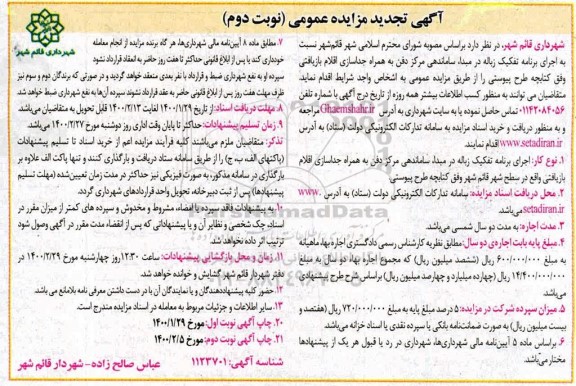 آگهی تجدید مزایده عمومی (نوبت دوم)
شهرداری قائم شهر
شهرداری قائم شهر، در نظر دارد براساس مصوبه شورای محترم اسلامی شهر قائم‌شهر نسبت
به اجرای برنامه تفکیک زباله در مبدا، ساماندهی مرکز دفن به همراه جداسازی اقلام بازیافتی
وفق کتابچه طرح پیوستی را از طریق مزایده عمومی به اشخاص واجد شرایط اقدام نماید.
متقاضیان می توانند به منظور کسب اطلاعات بیشتر همه روزه از تاریخ درج آگهی با شماره تلفن
۰۱۱۴۲۰۸۴۰۵۶ تماس حاصل نموده یا به سایت شهرداری به آدرس Ghaemshahr.ir مراجعه
و به منظور دریافت و خرید اسناد مزایده به سامانه تدارکات الکترونیکی دولت (ستاد) به آدرس
www.setadiran.ir اقدام نمایند.
۱. نوع کار: اجرای برنامه تفکیک زباله در مبدا، ساماندهی مرکز دفن به همراه جداسازی اقلام
بازیافتی واقع در سطح شهر قائم شهر وفق کتابچه طرح پیوستی.
۲. محل دریافت اسناد مزایده: سامانه تدارکات الکترونیکی دولت (ستاد) به آدرس www.
setadiran.ir می‌باشد.
۳. مدت اجاره: به مدت دو سال شمسی می‌باشد.
۴. مبلغ پایه بابت اجاره‌ی دو سال: مطابق نظریه کارشناس رسمی دادگستری اجاره بهاء ماهیانه
به مبلغ ۶۰۰/۰۰۰/۰۰۰ ریال (ششصد میلیون ریال) که مجموع اجاره بهاء دو سال به مبلغ
۱۴/۴۰۰/۰۰۰/۰۰۰ ریال (چهارده میلیارد و چهارصد میلیون ریال) براساس شرح طرح پیشنهادی
می‌باشد.
۵. میزان سپرده شرکت در مزایده: ۵ درصد مبلغ پایه به مبلغ ۷۲۰/۰۰۰/۰۰۰ ریال (هفتصد و
بیست میلیون ریال) به صورت ضمانت‌نامه بانکی یا سپرده نقدی یا اسناد خزانه می‌باشد.
۶. براساس ماده ۵ آیین‌نامه مالی شهرداری‌ها، شهرداری در رد یا قبول هر یک از پیشنهادها
مختار می‌باشد.
۷. مطابق ماده ۸ آیین‌نامه مالی شهرداری‌ها، هر گاه برنده مزایده از انجام معامله
خودداری کند یا پس از ابلاغ قانونی حداکثر تا هفت روز حاضر به انعقاد قرارداد نشود
سپرده او به نفع شهرداری ضبط و قرارداد با نفر بعدی منعقد خواهد گردید و در صورتی که برندگان دوم و سوم نیز
ظرف مهلت هفت روز پس از ابلاغ قانونی حاضر به عقد قرارداد نشوند سپرده آن‌ها به نفع شهرداری ضبط خواهد شد.
۸. مهلت دریافت اسناد: از تاریخ ۱۴۰۰/۱/۲۹ لغایت ۱۴۰۰/۲/۱۲ قابل تحویل به متقاضیان می‌باشد.
۹. زمان تسلیم پیشنهادات: حداکثر تا پایان وقت اداری روز دوشنبه مورخ ۱۴۰۰/۲/۲۷ می‌باشد.
تذکر: متقاضیان ملزم می‌باشند کلیه فرآیند مزایده اعم از خرید اسناد تا تسلیم پیشنهادات
(پاکتهای الف، ب، ج) را از طریق سامانه ستاد دریافت و بارگذاری کنند و تنها پاکت الف علاوه بر
بارگذاری در سامانه مذکور، به صورت فیزیکی نیز حداکثر در مدت زمان تعیین‌شده (مهلت تسلیم
پیشنهادها) پس از ثبت دبیرخانه، تحویل واحد قراردادهای شهرداری گردد.
۱۰. به پیشنهادات فاقد سپرده یا امضاء، مشروط و مخدوش و سپرده های کمتر از میزان مقرر در
اسناد، چک شخصی و نظایر آن و یا پیشنهاداتی که پس از انقضاء مدت مقرر در آگهی وصول شود
ترتیب اثر داده نخواهد شد.
۱۱. زمان و محل بازگشایی پیشنهادات: ساعت ۱۲:۳۰ روز چهارشنبه مورخ ۱۴۰۰/۲/۲۹ در
دفتر شهردار قائم شهر گشایش و خوانده خواهد شد.
۱۲. حضور کلیه پیشنهاددهندگان و یا نمایندگان آن با در دست داشتن معرفی نامه بلامانع می باشد.
۱۳. سایر اطلاعات و جزئیات مربوط به معامله در اسناد مزایده مندرج است.
۲۰. چاپ آگهی نوبت اول: مورخ ۱۴۰۰/۱/۲۹
۲۱. چاپ آگهی نوبت دوم: مورخ ۱۴۰۰/۲/۵
شناسه آگهی: ۱۱۲۳۷۰۱
عباس صالح زاده - شهردار قائم شهر
ParsNamadData